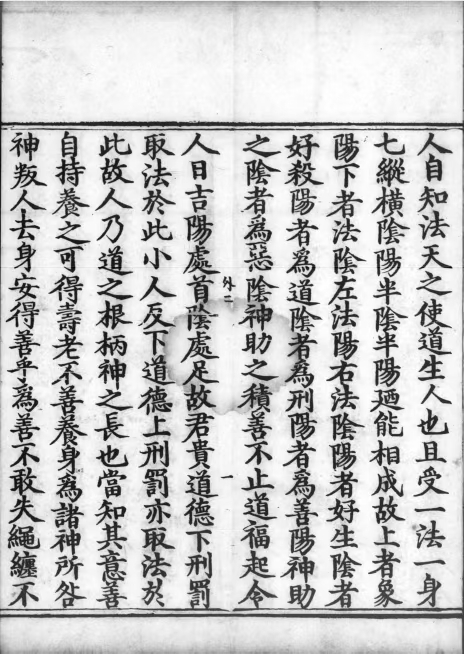 人自知法天之使道生人也且受一法一身
七縱横陰陽半陰半陽廼能相成故上者象
陽下者法陰左法陽右法陰陽者好生陰者
好殺陽者爲道陰者爲刑陽者爲善陽神助
之陰者爲惡陰神助之積善不止道福起令
外二 一
人日吉陽處首陰處足故君貴道德下刑罰
取法於此小人反下道德上刑罰亦取法於
此故人乃道之根柄神之長也當知其意善
自持養之可得壽老不善養身爲諸神所咎
神叛人去身安得善乎爲善不敢失繩纏不